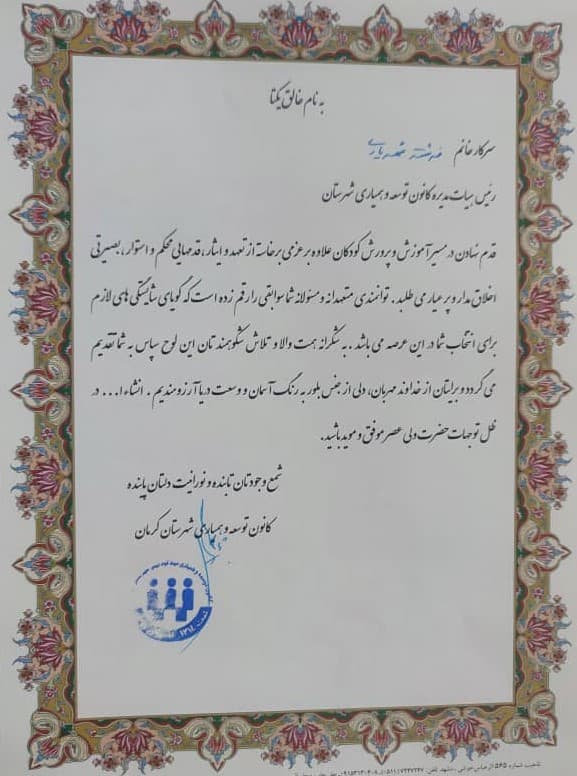 به نام خالق یکتا
سرکار خانم فرشته شهریاری
رئیس هیات مدیره کانون توسعه و همیاری شهرستان
قدم نهادن در مسیر آموزش و پرورش کودکان علاوه بر عزمی برخاسته از تعهد و ایثار، قدمهایی محکم و استوار، بصیرتی
اخلاق مدار و پر عیار می طلبد. توانمندی متعهدانه و مسئولانه شما سوابقی را رقم زده است که گویای شایستگی های لازم
برای انتخاب شما در این عرصه می باشد. به شکرانه همت والا و تلاش شکوهمند تان این لوح سپاس به شما تقدیم
می گردد و برایتان از خداوند مهربان، دلی از جنس بلور به رنگ آسمان و وسعت دریا آرزومندیم. انشاء ا... در
ظل توجهات حضرت ولی عصر موفق و موید باشید.
شمع وجودتان تابنده و نورانیت دلتان پاینده
کانون توسعه و همیاری شهرستان کرمان